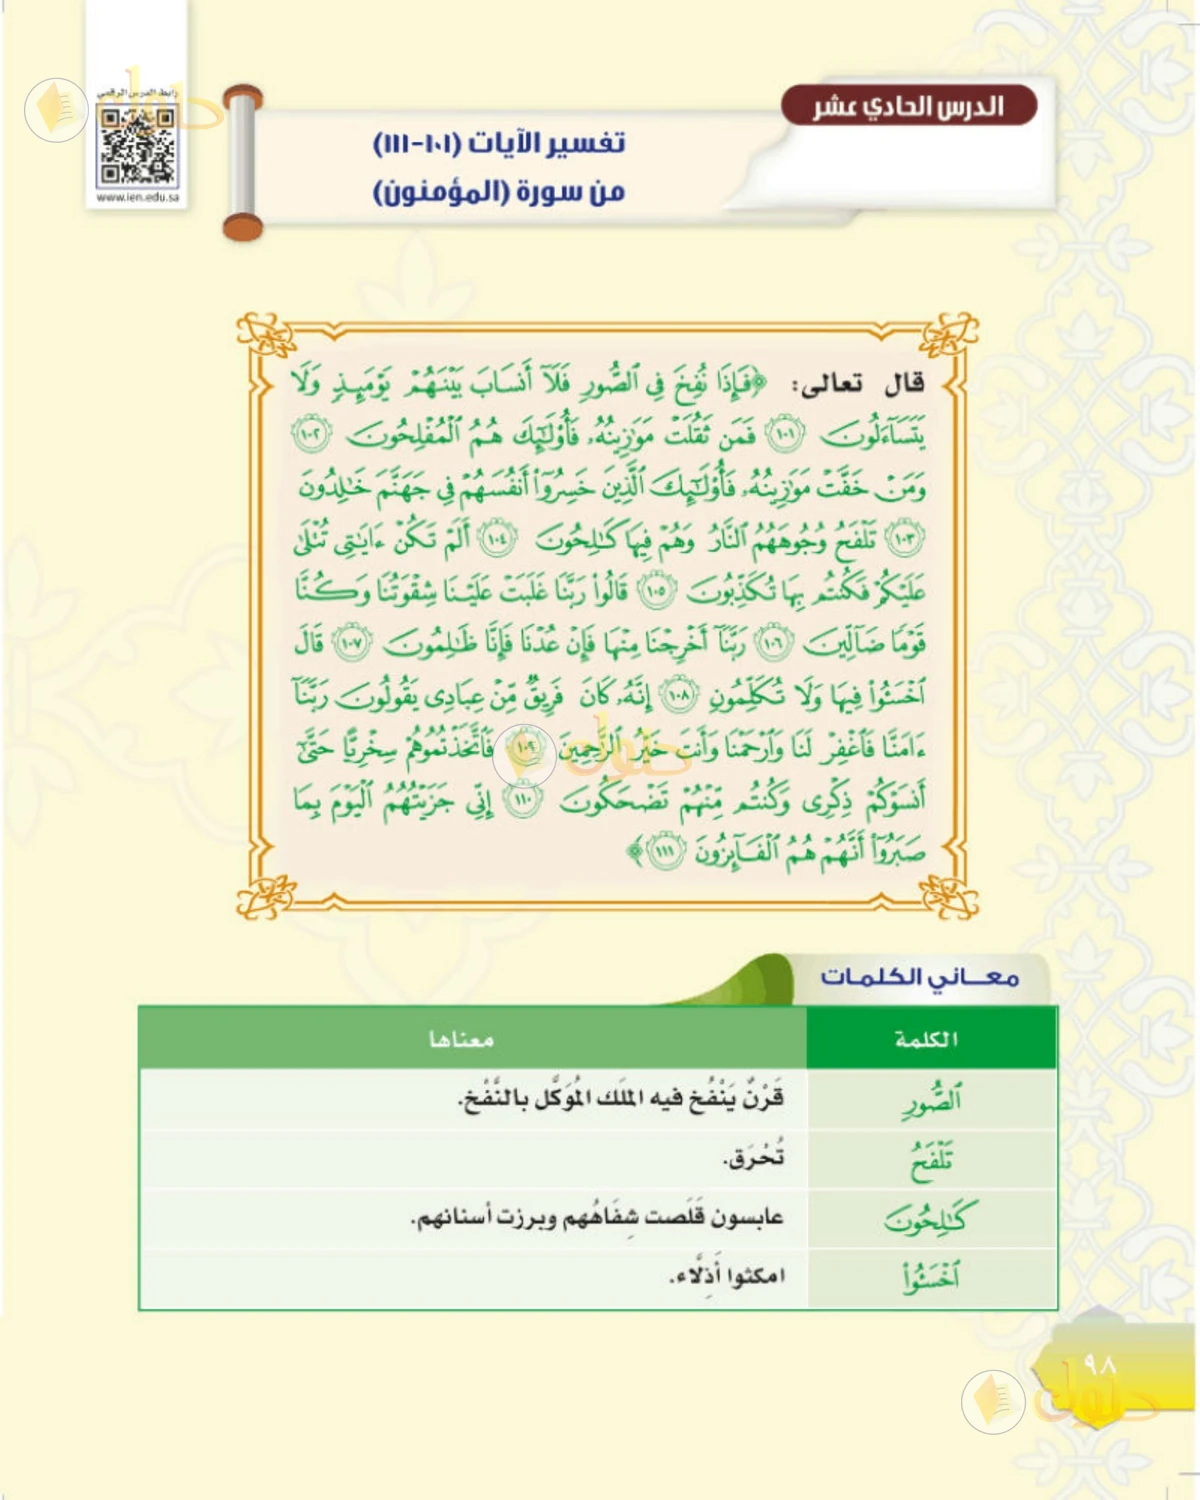 الدرس الحادي عشر
تفسير الآيات (١٠١-١١١)
من سورة (المؤمنون)
رابط الدرس الرقمي
www.ien.edu.sa
حلول
قال تعالى: ﴿فَإِذَا نُفِخَ فِي ٱلصُّورِ فَلَآ أَنسَابَ بَيْنَهُمْ يَوْمَئِذٍ وَلَا
يَتَسَآءَلُونَ ١٠١ فَمَن ثَقُلَتْ مَوَٰزِينُهُۥ فَأُو۟لَٰٓئِكَ هُمُ ٱلْمُفْلِحُونَ ١٠٢
وَمَنْ خَفَّتْ مَوَٰزِينُهُۥ فَأُو۟لَٰٓئِكَ ٱلَّذِينَ خَسِرُوٓا۟ أَنفُسَهُمْ فِي جَهَنَّمَ خَٰلِدُونَ
١٠٣ تَلْفَحُ وُجُوهَهُمُ ٱلنَّارُ وَهُمْ فِيهَا كَٰلِحُونَ ١٠٤ أَلَمْ تَكُنْ ءَايَٰتِي تُتْلَىٰ
عَلَيْكُمْ فَكُنتُم بِهَا تُكَذِّبُونَ ١٠٥ قَالُوا۟ رَبَّنَا غَلَبَتْ عَلَيْنَا شِقْوَتُنَا وَكُنَّا
قَوْمًا ضَآلِّينَ ١٠٦ رَبَّنَآ أَخْرِجْنَا مِنْهَا فَإِنْ عُدْنَا فَإِنَّا ظَٰلِمُونَ ١٠٧ قَالَ
ٱخْسَـُٔوا۟ فِيهَا وَلَا تُكَلِّمُونِ ١٠٨ إِنَّهُۥ كَانَ فَرِيقٌ مِّنْ عِبَادِى يَقُولُونَ رَبَّنَآ
ءَامَنَّا فَٱغْفِرْ لَنَا وَٱرْحَمْنَا وَأَنتَ خَيْرُ ٱلرَّٰحِمِينَ ١٠٩ فَٱتَّخَذْتُمُوهُمْ سِخْرِيًّا حَتَّىٰٓ
أَنسَوْكُمْ ذِكْرِى وَكُنتُم مِّنْهُمْ تَضْحَكُونَ ١١٠ إِنِّي جَزَيْتُهُمُ ٱلْيَوْمَ بِمَا
صَبَرُوٓا۟ أَنَّهُمْ هُمُ ٱلْفَآئِزُونَ ١١١﴾
حلول
معاني الكلمات
الكلمة معناها
ٱلصُّورِ قَرْنٌ يَنْفُخ فيه الملَك المُوَكَّل بالنَّفْخ.
تَلْفَحُ تُحْرَق.
كَٰلِحُونَ عابسون قَلَصت شِفَاهُهم وبرزت أسنانهم.
ٱخْسَـُٔوا۟ امكثوا أذِلَّاء.
٩٨
حلول